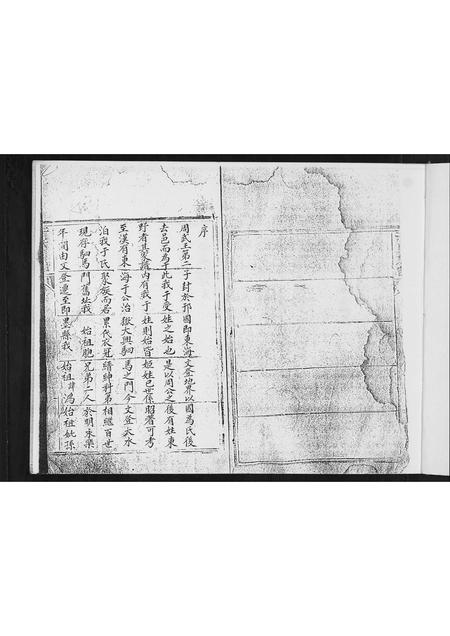 序
周武王第二子封於邘國即東海文登地界以國為氏後
去邑而為于此我于受姓之始也是以周公之後有姓東
野者其家譜內有我于姓則始皆姬姓已世係昭著可考
至漢有東海于公治獄大興駟馬之門今文登大水
泊我于氏聚族而居累代衣冠縉紳科第相繼百世
現存駟馬門舊址我始祖胞兄第二人於明永樂
年間由文登遷至即墨縣我始祖諱鴻始祖妣孫